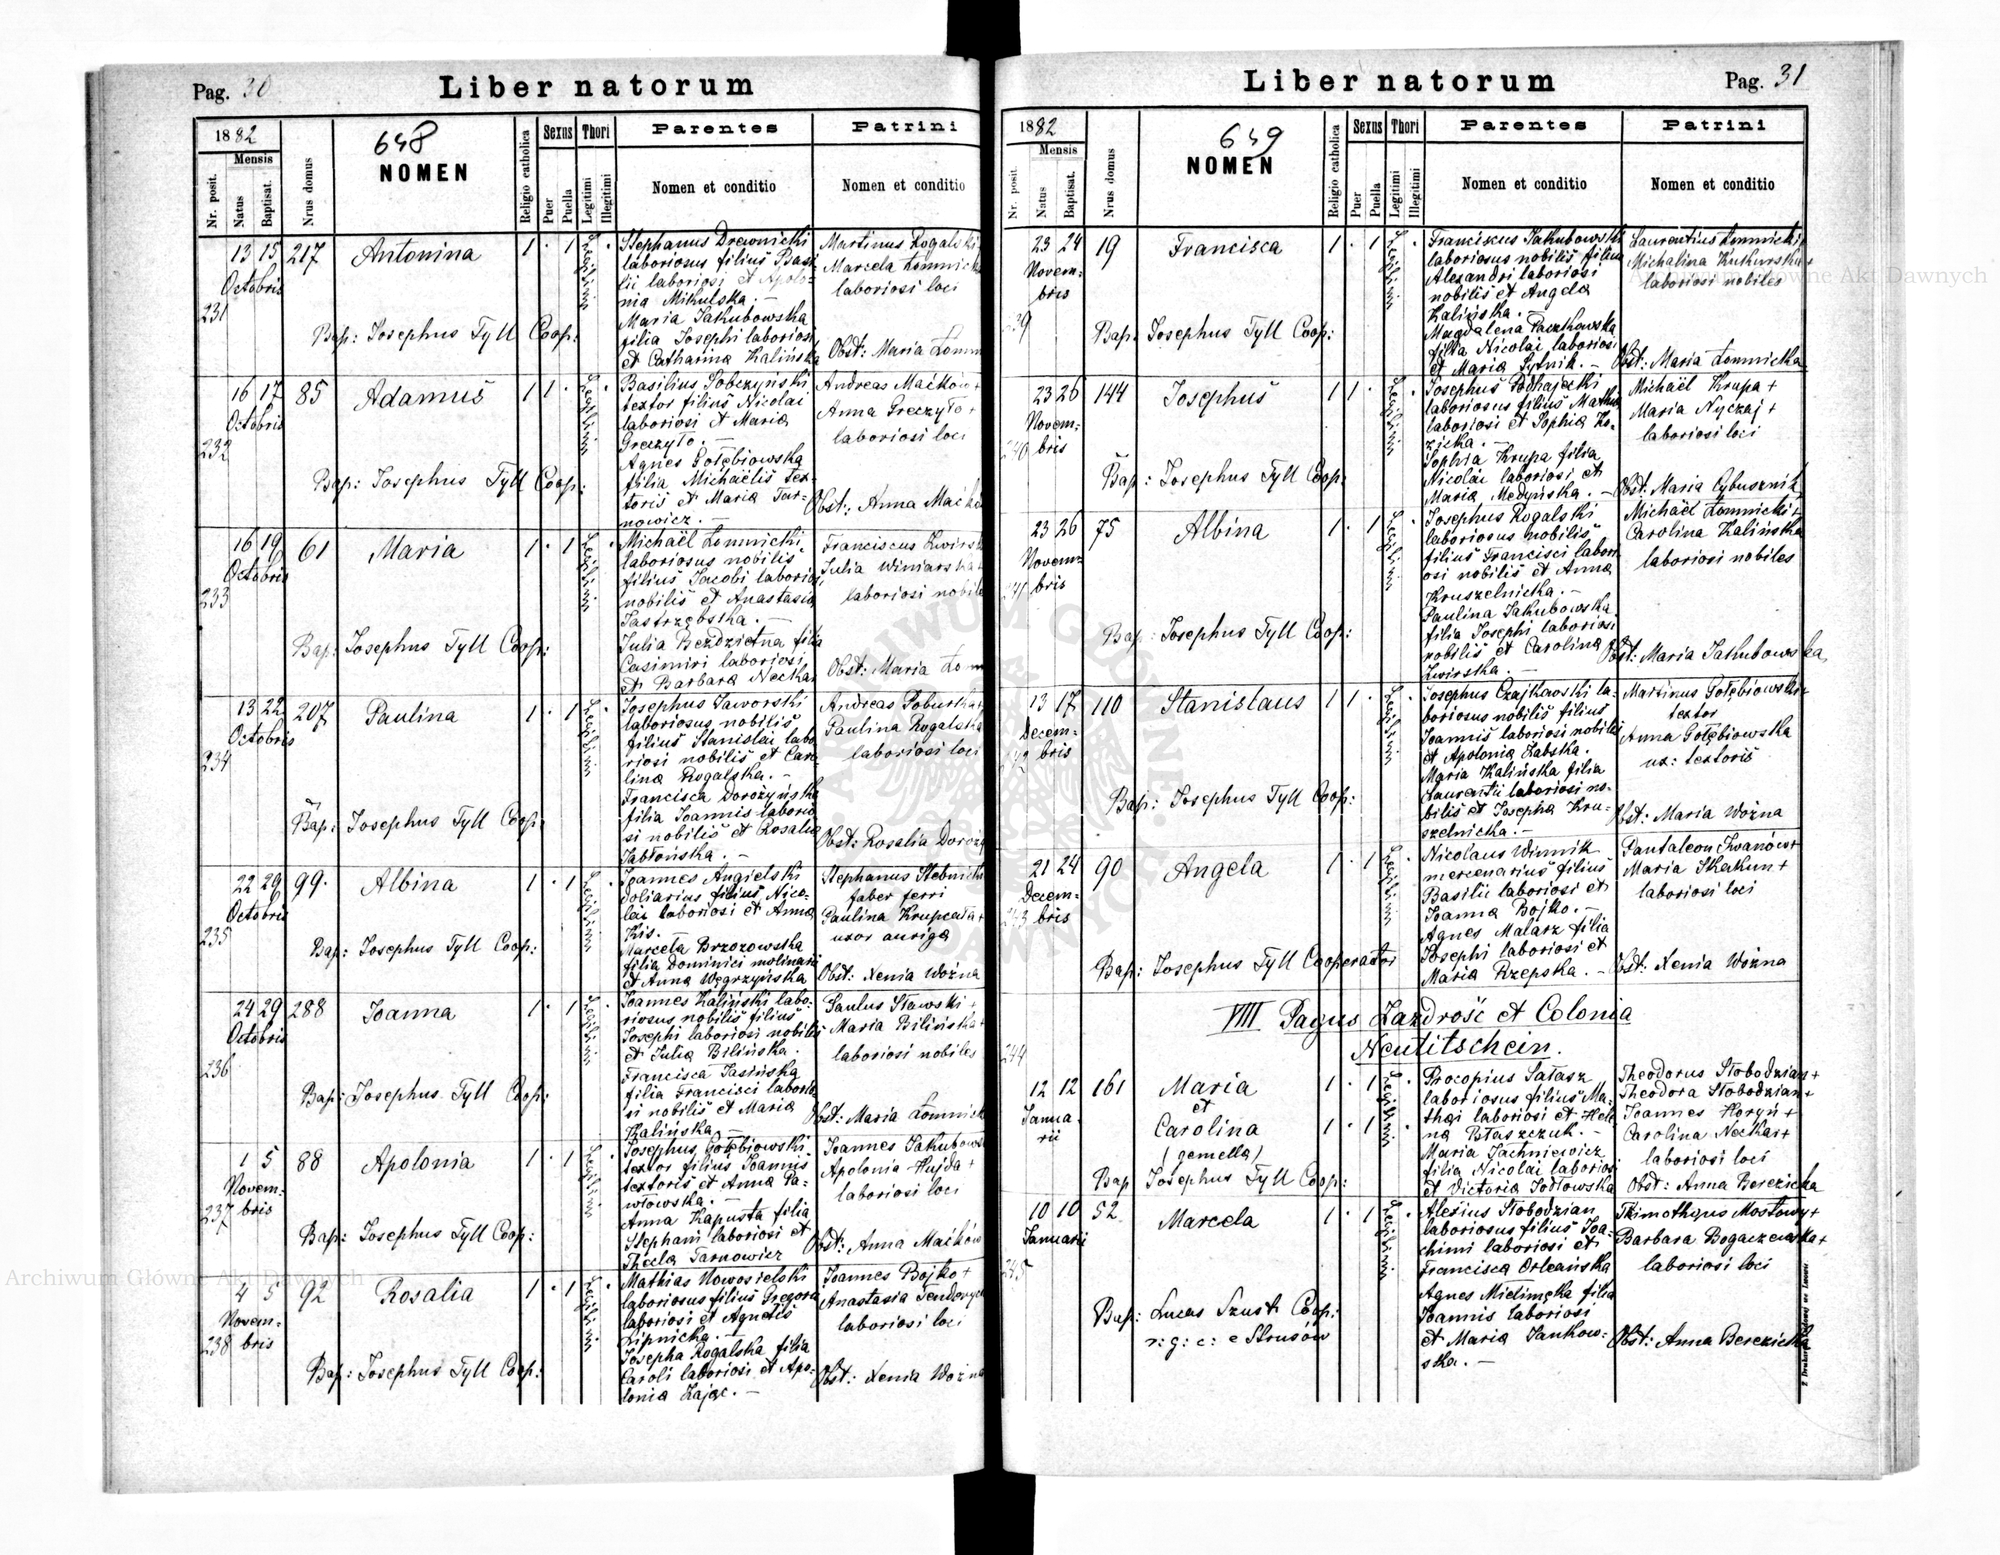 Pag. 30
Liber natorum
1882
648
NOMEN
Mensis
Nr. posit.
Natus
Baptisat.
Nrus domus
Religio catholica
Sexus
Thori
Puer
Puella
Legitimi
Illegitimi
Parentes
Nomen et conditio
Patrini
Nomen et conditio
13 15 217 Antonina 1 · 1
Octobris
231
Bap: Josephus Tyll Coop:
Stephanus Drewnicki
laboriosus filius Basi-
lii laboriosi et Apolo-
nia Mikulska. —
Maria Jakubowska
filia Josephi laboriosi
et Catharina Kalińska
Martinus Rogalski
Marcela
laboriosi loci
Obst: Maria
16 17 85 Adamus 1 1 ·
Octobris
232
Bap: Josephus Tyll Coop:
Basilius Sobczyński
textor filius Nicolai
laboriosi et Maria
Greczyło. —
Agnes Gołębiowska
filia Michaelis tex-
toris et Maria Tar-
nowicz. —
Andreas Maćków +
Anna Greczyło +
laboriosi loci
Obst: Anna
16 19 61 Maria 1 · 1
Octobris
233
Bap: Josephus Tyll Coop:
Michaël Łomnicki
laboriosus nobilis
filius Jacobi laboriosi
nobilis et Anastasia
Jastrzębska. —
Julia Bezdzietna filia
Casimiri laboriosi
et Barbara Neckar
Franciscus
Julia Winiarska
laboriosi nobiles
Obst: Maria
13 22 207 Paulina 1 · 1
Octobris
234
Bap: Josephus Tyll Coop:
Josephus Jaworski
laboriosus nobilis
filius Stanislai labo-
riosi nobilis et Caro-
lina Rogalska. —
Francisca Dorożyńska
filia Joannis laborio-
si nobilis et Rosalia
Jabłońska. —
Andreas
Paulina Rogalska
laboriosi loci
Obst: Rosalia
22 29 99 Albina 1 · 1
Octobris
235
Bap: Josephus Tyll Coop:
Joannes Angielski
doliarius filius Nico-
lai laboriosi et Anna
Kis.
Marcela Brzozowska
filia Dominici molinari
et Anna Węgrzyńska
Stephanus Stebnicki
faber ferri
Paulina
uxor auriga
Obst: Xenia Woźna
24 29 288 Joanna 1 · 1
Octobris
236
Bap: Josephus Tyll Coop:
Joannes Kaliński labo-
riosus nobilis filius
Josephi laboriosi nobilis
et Julia Bilińska.
Francisca Jasińska
filia Francisci laborio-
si nobilis et Maria
Kalińska. —
Paulus Stawski +
Maria Bilińska +
laboriosi nobiles
Obst: Maria
1 5 88 Apolonia 1 · 1
Novem-
237 bris
Bap: Josephus Tyll Coop:
Josephus Gołębiowski
textor filius Joannis
textoris et Anna Pa-
włowska. —
Anna Kapusta filia
Stephani laboriosi et
Thecla Tarnowicz
Joannes
Apolonia Hujda +
laboriosi loci
Obst: Anna Maćków
4 5 92 Rosalia 1 · 1
Novem-
238 bris
Bap: Josephus Tyll Coop:
Mathias Nowosielski
laboriosus filius Gregorii
laboriosi et Agnetis
Lipnicka. —
Josepha Rogalska filia
Caroli laboriosi et Apo-
lonia Zając. —
Joannes Bojko +
Anastasia
laboriosi loci
Obst: Xenia Woźna
Pag. 31
Liber natorum
1882
649
NOMEN
Mensis
Nr. posit.
Natus
Baptisat.
Nrus domus
Religio catholica
Sexus
Thori
Puer
Puella
Legitimi
Illegitimi
Parentes
Nomen et conditio
Patrini
Nomen et conditio
23 24 19 Francisca 1 · 1
Novem-
bris
239
Bap: Josephus Tyll Coop:
Franciscus Jakubowski
laboriosus nobilis filius
Alexandri laboriosi
nobilis et Angela
Kalińska. —
Magdalena Paczkowska
filia Nicolai laboriosi
et Maria Sytnik. —
Laurentius Łomnicki +
Michalina
laboriosi nobiles
Obst: Maria Łomnicka
23 26 144 Josephus 1 1 ·
Novem-
240 bris
Bap: Josephus Tyll Coop:
Josephus Podhajecki
laboriosus filius
laboriosi et Sophia Ko-
zicka. —
Sophia Krupa filia
Nicolai laboriosi et
Maria Medyńska. —
Michaël Krupa +
Maria Nyczaj +
laboriosi loci
Obst: Maria Cybusznik
23 26 75 Albina 1 · 1
Novem-
241 bris
Bap: Josephus Tyll Coop:
Josephus Rogalski
laboriosus nobilis
filius Francisci labori-
osi nobilis et Anna
Kruszelnicka. —
Paulina Jakubowska
filia Josephi laboriosi
nobilis et Carolina
Zwirska. —
Michaël Łomnicki +
Carolina Kalińska
laboriosi nobiles
Obst: Maria Jakubowska
13 17 110 Stanislaus 1 1 ·
Decem-
242 bris
Bap: Josephus Tyll Coop:
Josephus Czajkowski la-
boriosus nobilis filius
Joannis laboriosi nobilis
et Apolonia Zabska.
Maria Kalińska filia
Laurentii laboriosi no-
bilis et Josepha Kru-
szelnicka. —
Martinus Gołębiowski
textor
Anna Gołębiowska
ux: textoris
Obst: Maria Woźna
21 24 90 Angela 1 · 1
Decem-
243 bris
Bap: Josephus Tyll Cooperator
Nicolaus Winnik
mercenarius filius
Basilii laboriosi et
Joanna Bojko. —
Agnes Malarz filia
Josephi laboriosi et
Maria Rzepska. —
Pantaleon Iwanów +
Maria Skakun +
laboriosi loci
Obst: Xenia Woźna
VIII Pagus Zazdrość et Colonia
Neutitschein.
244
12 12 161 Maria 1 · 1
et
Janua-
rii
Carolina 1 · 1
(gemella)
Bap Josephus Tyll Coop:
Procopius Sałasz
laboriosus filius Ma-
thai laboriosi et Hele-
na Błaszczuk. —
Maria Jachniewicz
filia Nicolai laboriosi
et Victoria Jodłowska
Theodorus Słobodzian +
Theodora Słobodzian +
Joannes Horyń +
Carolina Neckar +
laboriosi loci
Obst: Anna Berezicka
10 10 52 Marcela 1 · 1
Januarii
245
Bap: Lucas Szust Coop:
r: g: c: e Strusów
Alexius Słobodzian
laboriosus filius Joa-
chimi laboriosi et
Francisca Orleańska
Agnes Mielimcka filia
Joannis laboriosi
et Maria Jankow-
ska. —
Thimotheus Mostowy +
Barbara Bogaczewska +
laboriosi loci
Obst: Anna Berezicka
Archiwum Główne Akt Dawnych
Archiwum Główne Akt Dawnych